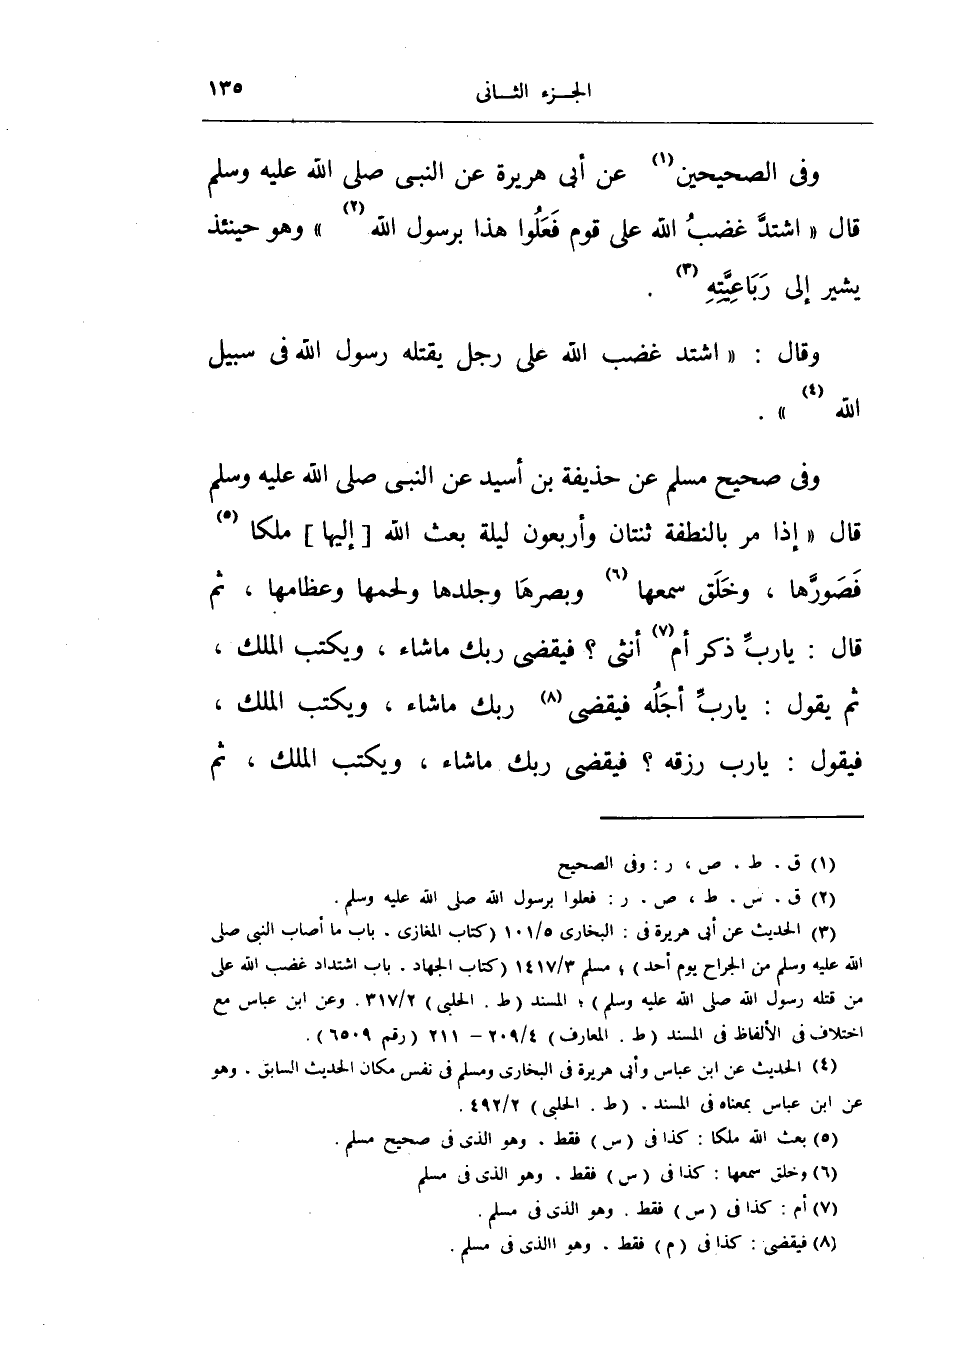 الجـزء الثـانى ١٣٥
وفى الصحيحين(١) عن أبى هريرة عن النبى صلى الله عليه وسلم
قال « اشتدَّ غضبُ الله على قوم فَعَلُوا هذا برسول الله(٢) » وهو حينئذ
يشير إلى رَبَاعِيَّتِهِ(٣) .
وقال : « اشتد غضب الله على رجل يقتله رسول الله فى سبيل
الله(٤) » .
وفى صحيح مسلم عن حذيفة بن أسيد عن النبى صلى الله عليه وسلم
قال « إذا مر بالنطفة ثنتان وأربعون ليلة بعث الله [ إليها ] ملكا(٥)
فَصَورَّها ، وخَلَق سمعها(٦) وبصرهَا وجلدها ولحمها وعظامها ، ثم
قال : ياربِّ ذكر أم(٧) أنثى ؟ فيقضى ربك ماشاء ، ويكتب الملك ،
ثم يقول : ياربِّ أجَلُه فيقضى(٨) ربك ماشاء ، ويكتب الملك ،
فيقول : يارب رزقه ؟ فيقضى ربك ماشاء ، ويكتب الملك ، ثم
(١) ق . ط . ص ، ر : وفى الصحيح
(٢) ق . س . ط ، ص . ر : فعلوا برسول الله صلى الله عليه وسلم .
(٣) الحديث عن أبى هريرة فى : البخارى ١٠١/٥ (كتاب المغازى . باب ما أصاب النبى صلى
الله عليه وسلم من الجراح يوم أحد) ؛ مسلم ١٤١٧/٣ (كتاب الجهاد . باب اشتداد غضب الله على
من قتله رسول الله صلى الله عليه وسلم) ؛ المسند (ط . الحلبى) ٣١٧/٢ . وعن ابن عباس مع
اختلاف فى الألفاظ فى المسند (ط . المعارف) ٢٠٩/٤ – ٢١١ (رقم ٦٥٠٩) .
(٤) الحديث عن ابن عباس وأبى هريرة فى البخارى ومسلم فى نفس مكان الحديث السابق . وهو
عن ابن عباس بمعناه فى المسند . (ط . الحلبى) ٤٩٢/٢ .
(٥) بعث الله ملكا : كذا فى (س) فقط . وهو الذى فى صحيح مسلم .
(٦) وخلق سمعها : كذا فى (س) فقط . وهو الذى فى مسلم
(٧) أم : كذا فى (س) فقط . وهو الذى فى مسلم .
(٨) فيقضى : كذا فى (م) فقط . وهو االذى فى مسلم .